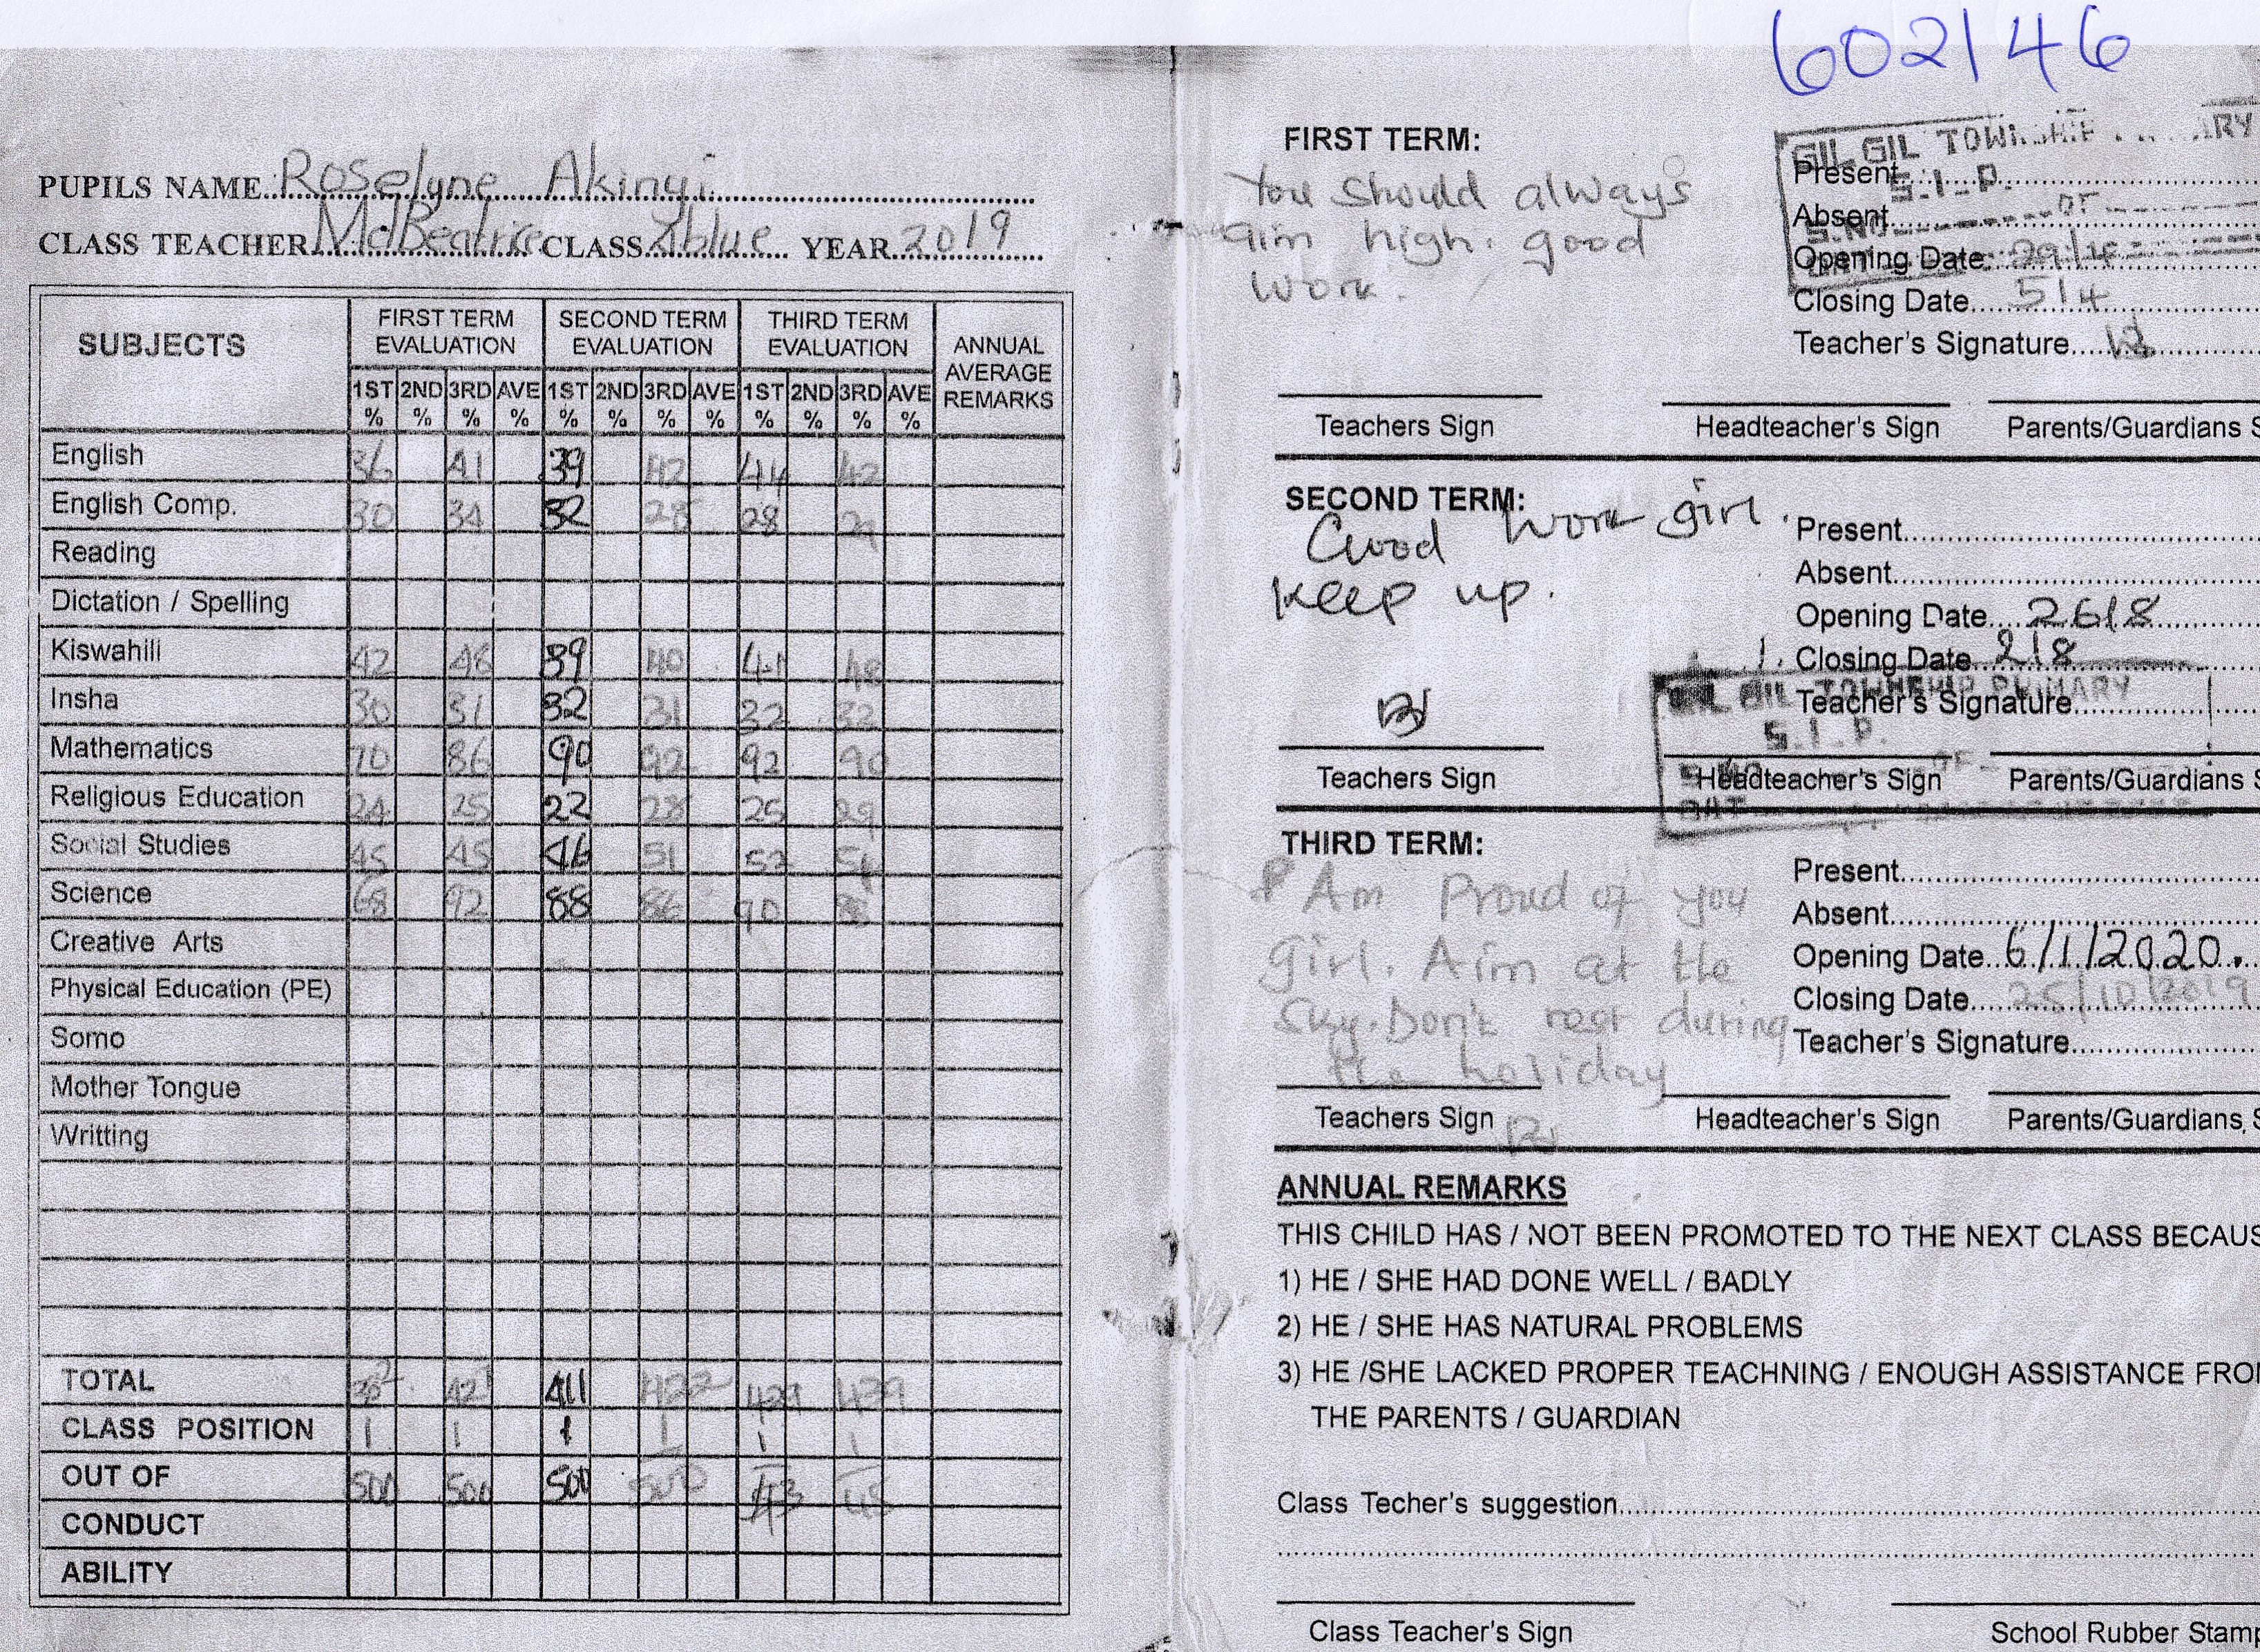 602146
PUPILS NAME Roselyne Akinyi
CLASS TEACHER MdBeatrice CLASS blue YEAR 2019
SUBJECTS FIRST TERM EVALUATION SECOND TERM EVALUATION THIRD TERM EVALUATION ANNUAL AVERAGE REMARKS
1ST % 2ND % 3RD % AVE % 1ST % 2ND % 3RD % AVE % 1ST % 2ND % 3RD % AVE %
English 36 41 39 42 44 42
English Comp. 30 34 32 28 28 29
Reading
Dictation / Spelling
Kiswahili 42 48 39 40 41 48
Insha 30 31 32 31 32 32
Mathematics 70 86 90 92 92 90
Religious Education 24 25 22 28 25 29
Social Studies 45 45 46 51 52 54
Science 68 92 88 86 90
Creative Arts
Physical Education (PE)
Somo
Mother Tongue
Writting
TOTAL 421 411 422 429 439
CLASS POSITION 1 1 1 1 1 1
OUT OF 500 500 500 500 43 45
CONDUCT
ABILITY
FIRST TERM:
You should always
aim high. good
work.
GIL GIL TOWNSHIP
S.I.P.
Present
Absent
Opening Date 29/4
Closing Date 5/4
Teacher's Signature
Teachers Sign Headteacher's Sign Parents/Guardians S
SECOND TERM:
Good work girl.
keep up.
Present
Absent
Opening Date 26/8
Closing Date 2/8
Teacher's Signature
GIL GIL TOWNSHIP PRIMARY
S.I.P.
Teachers Sign Headteacher's Sign Parents/Guardians S
THIRD TERM:
Am Proud of you
girl. Aim at the
Sky. Don't rest during
the holiday
Present
Absent
Opening Date 6/1/2020.
Closing Date 25/10/2019
Teacher's Signature
Teachers Sign Headteacher's Sign Parents/Guardians, S
ANNUAL REMARKS
THIS CHILD HAS / NOT BEEN PROMOTED TO THE NEXT CLASS BECAUS
1) HE / SHE HAD DONE WELL / BADLY
2) HE / SHE HAS NATURAL PROBLEMS
3) HE /SHE LACKED PROPER TEACHNING / ENOUGH ASSISTANCE FRO
THE PARENTS / GUARDIAN
Class Techer's suggestion
Class Teacher's Sign School Rubber Stamp